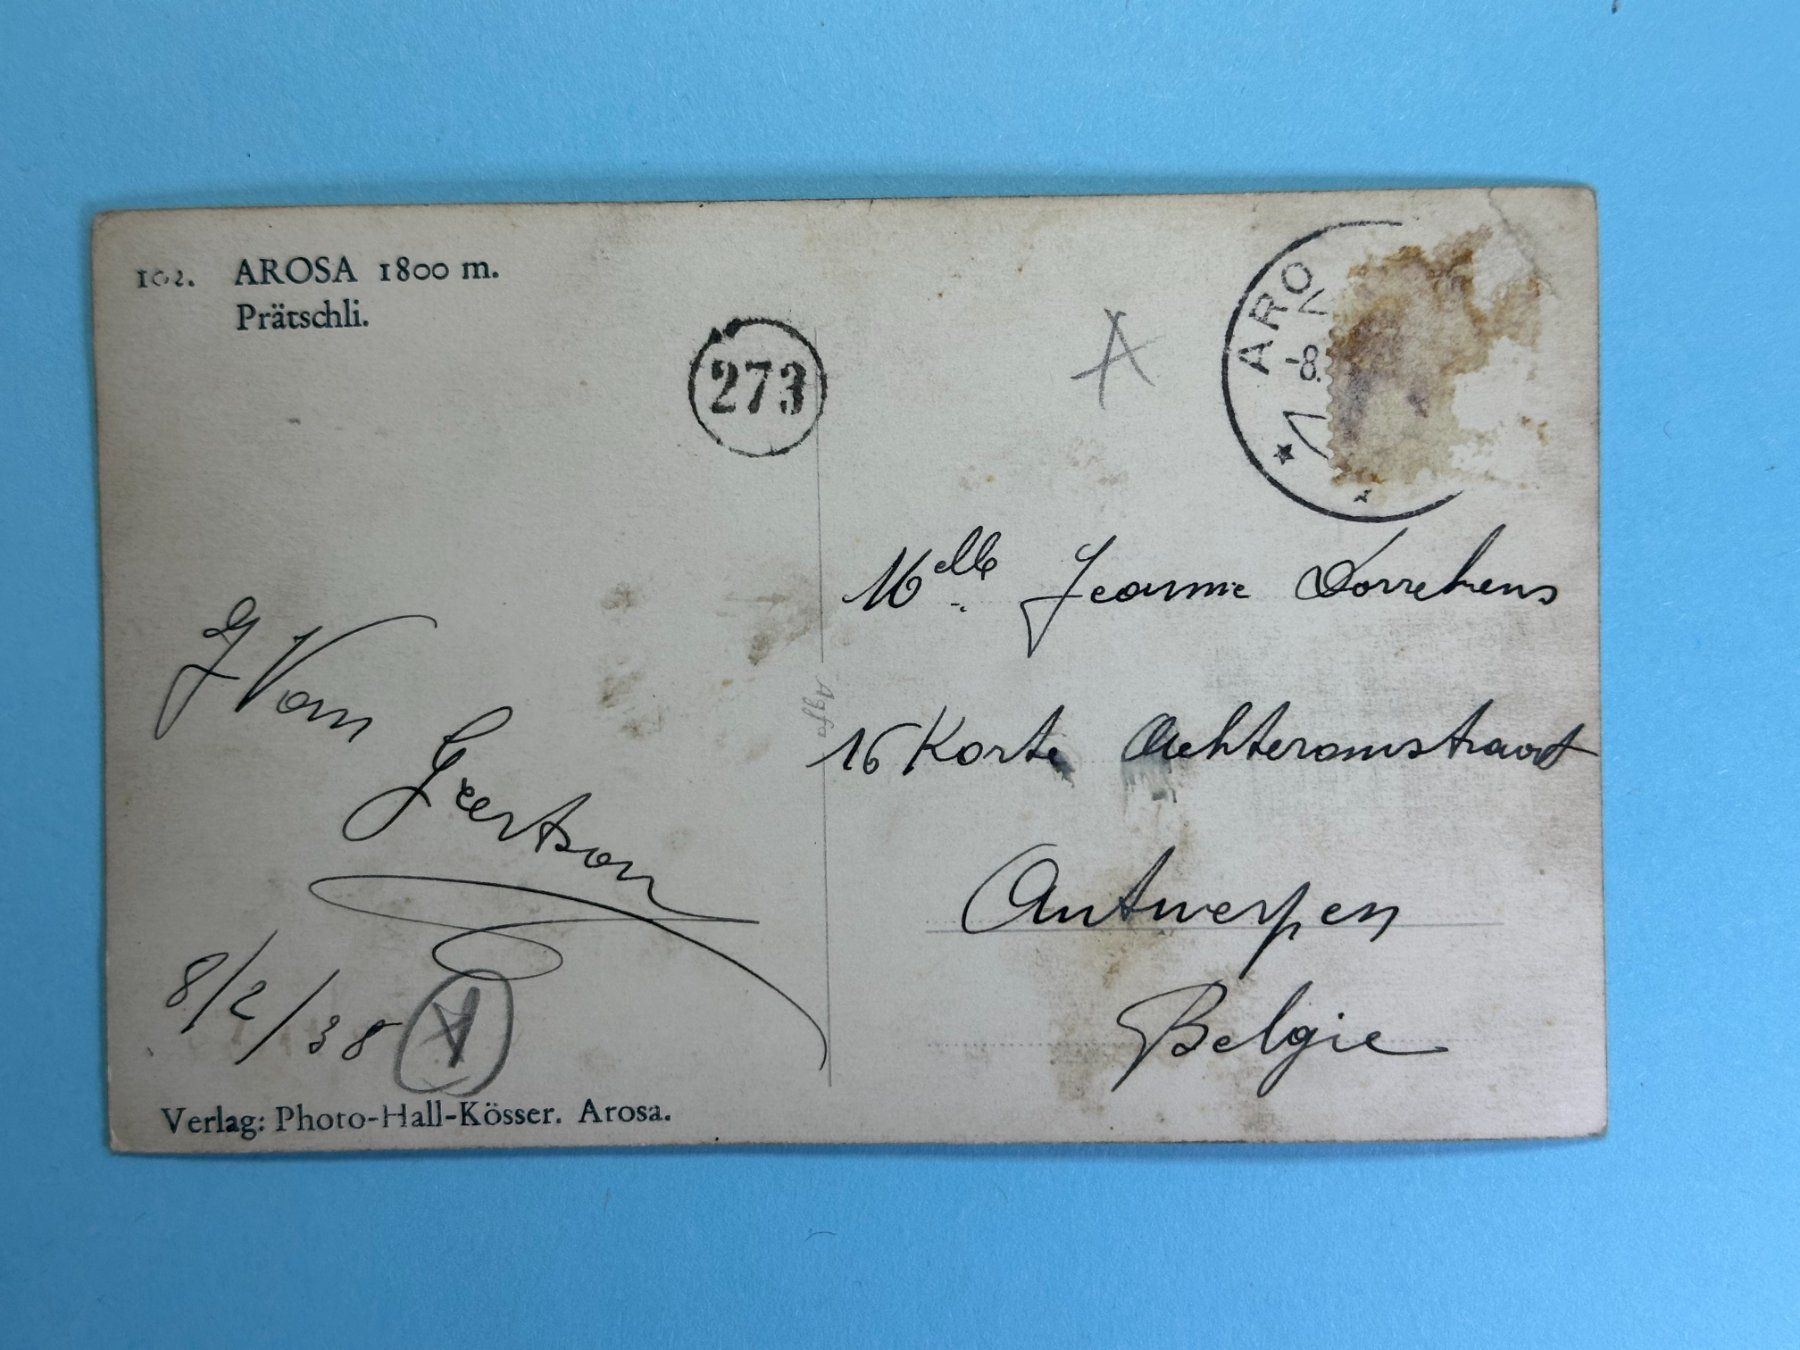 102. AROSA 1800 m.
Prätschli.
273
A
ARO
-8.
Melle Jeanne
16 Korte
Antwerpen
Belgie
J Van
Geertson
8/2/38
A
Agfa
Verlag: Photo-Hall-Kösser. Arosa.